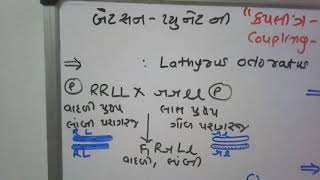 બેટસન - પ્યુનેટ ની "કપલીંગ-
Coupling-
⇒ : Lathyrus odoratus
Ⓟ RRLL × ㄱㄱll Ⓟ
વાદળી પુષ્પ લાલ પુષ્પ
લાંબી પરાગરજ ગોળ પરાગરજ
RL rl
RL rl
F₁ RrLl
વાદળી, લાંબી
⇒